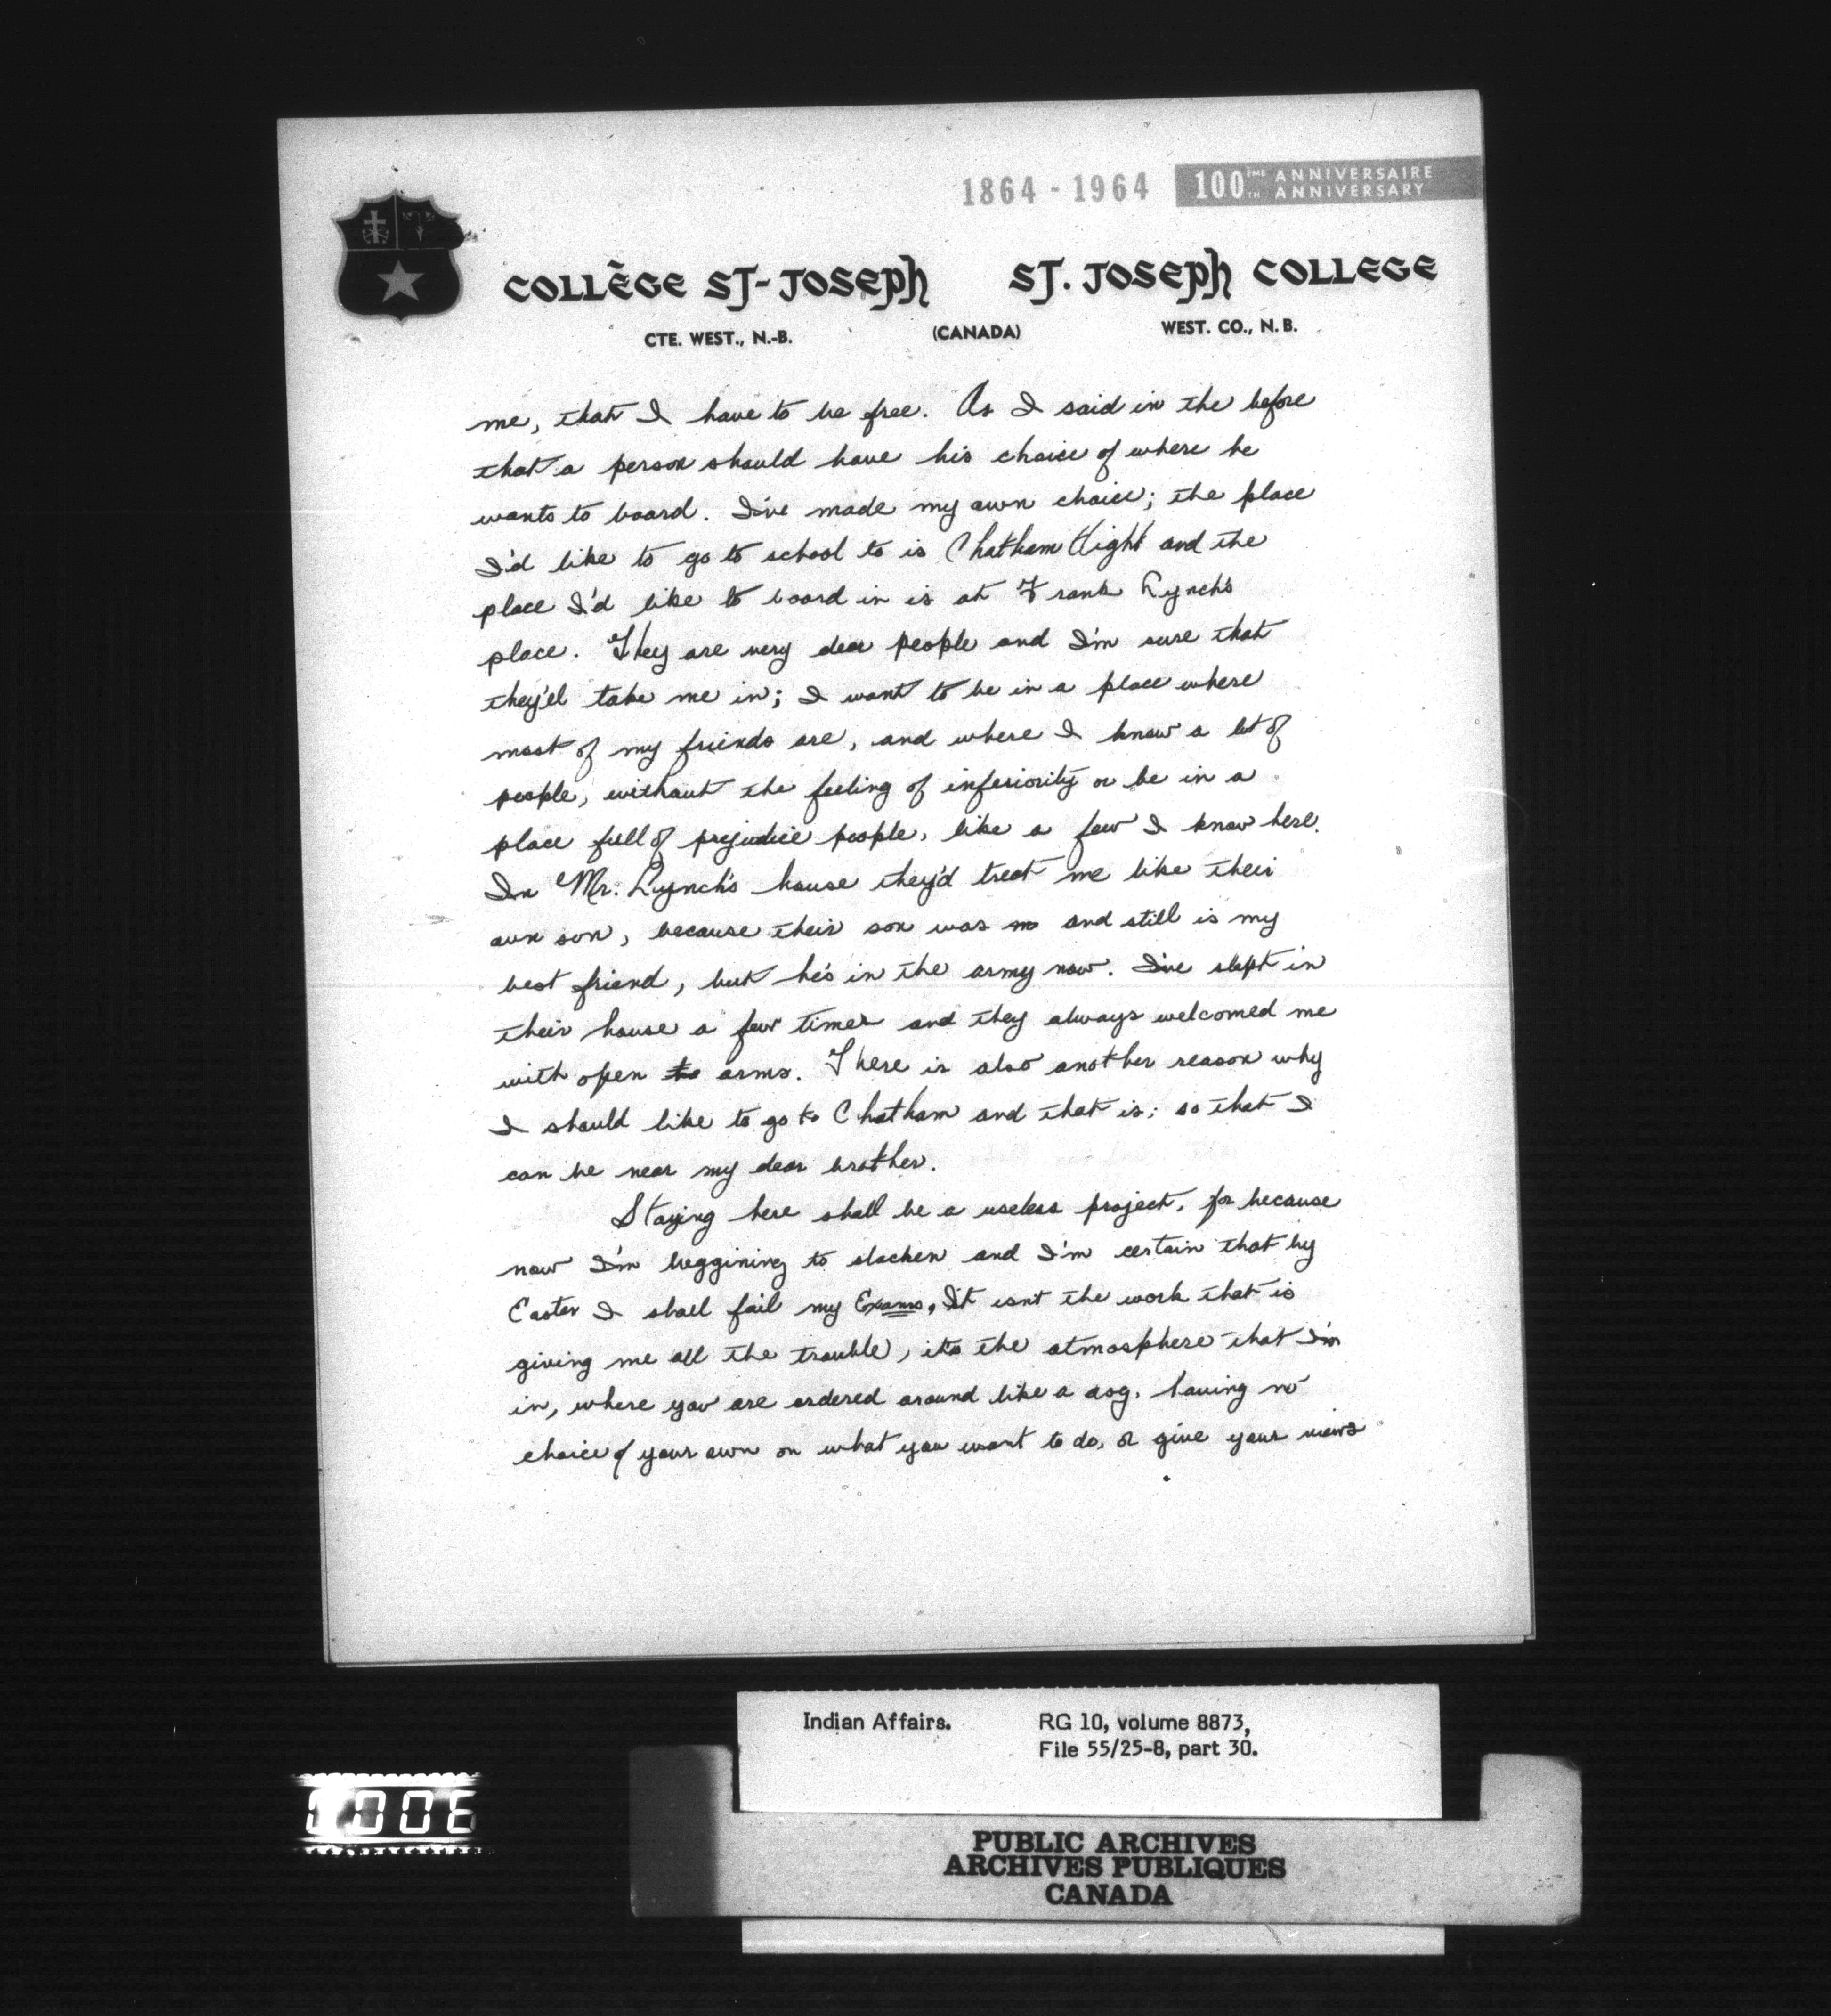 1864 - 1964 100IME TH ANNIVERSAIRE ANNIVERSARY
COLLÈGE ST-JOSEPH ST. JOSEPH COLLEGE
CTE. WEST., N.-B. (CANADA) WEST. CO., N. B.
me, that I have to be free. As I said in the before
that a person should have his choice of where he
wants to board. I've made my own choice; the place
I'd like to go to school to is Chatham Hight and the
place I'd like to board in is at Frank Lynch's
place. They are very dear people and I'm sure that
they'el take me in; I want to be in a place where
most of my friends are, and where I know a lot of
people, without the feeling of inferiority or be in a
place full of prejudice people, like a few I know here.
In Mr. Lynch's house they'd treat me like their
own son, because their son was m and still is my
best friend, but he's in the army now. I've slept in
their house a few times and they always welcomed me
with open to arms. There is also another reason why
I should like to go to Chatham and that is; so that I
can be near my dear brother.
Staying here shall be a useless project, for because
now I'm beggining to slacken and I'm certain that by
Easter I shall fail my Exams. It isn't the work that is
giving me all the trouble, it's the atmosphere that I'm
in, where you are ordered around like a dog, having no
choice of your own on what you want to do, or give your views
Indian Affairs. RG 10, volume 8873,
File 55/25-8, part 30.
PUBLIC ARCHIVES
ARCHIVES PUBLIQUES
CANADA